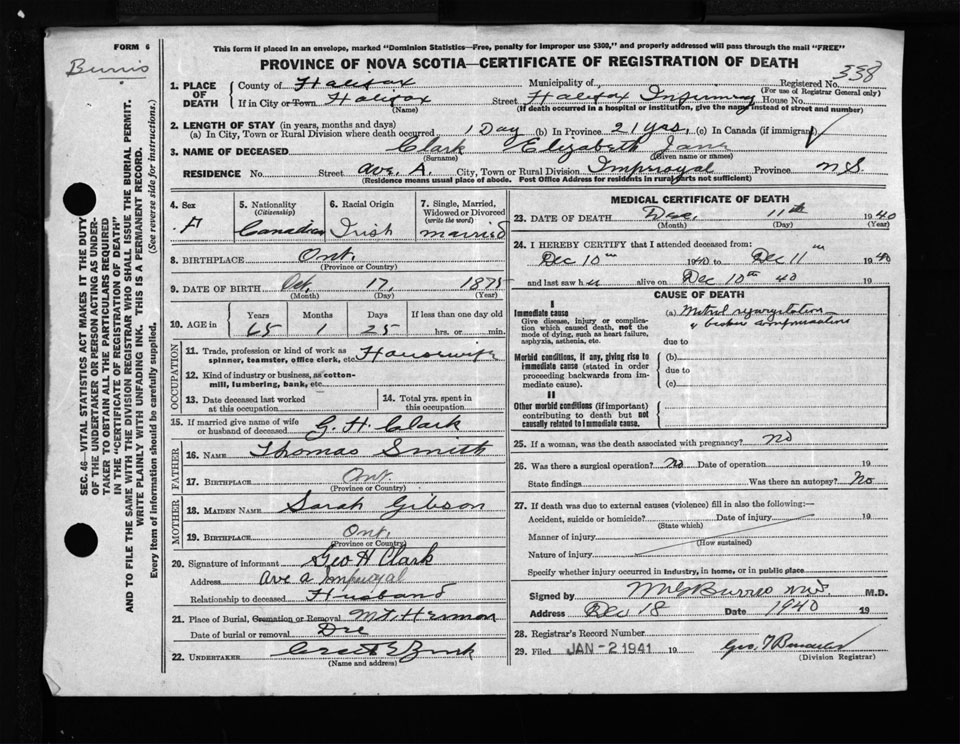 FORM 6
This form if placed in an envelope, marked "Dominion Statistics—Free, penalty for improper use $300," and properly addressed will pass through the mail "FREE"
Burris
PROVINCE OF NOVA SCOTIA—CERTIFICATE OF REGISTRATION OF DEATH
338
1. PLACE OF DEATH County of Halifax Municipality of Registered No.
(For use of Registrar General only)
If in City or Town Halifax Street Halifax Infirmary House No.
(Name) (If death occurred in a hospital or institution, give the name instead of street and number)
2. LENGTH OF STAY (in years, months and days)
(a) In City, Town or Rural Division where death occurred 1 Day (b) In Province 21 yrs, (c) In Canada (if immigrant)
3. NAME OF DECEASED Clark Elizabeth Jane
(Surname) (Given name or names)
RESIDENCE No. Street Ave. A. City, Town or Rural Division Imperoyal Province N.S.
(Residence means usual place of abode. Post Office Address for residents in rural parts not sufficient)
4. Sex F
5. Nationality (Citizenship) Canadian
6. Racial Origin Irish
7. Single, Married, Widowed or Divorced (write the word) married
8. BIRTHPLACE Ont.
(Province or Country)
9. DATE OF BIRTH Oct. 17, 1875
(Month) (Day) (Year)
10. AGE in Years Months Days If less than one day old
65 1 25 hrs. or min.
OCCUPATION
11. Trade, profession or kind of work as spinner, teamster, office clerk, etc. Housewife
12. Kind of industry or business, as cotton-mill, lumbering, bank, etc.
13. Date deceased last worked at this occupation
14. Total yrs. spent in this occupation
15. If married give name of wife or husband of deceased G. H. Clark
FATHER
16. NAME Thomas Smith
17. BIRTHPLACE Ont.
(Province or Country)
MOTHER
18. MAIDEN NAME Sarah Gibson
19. BIRTHPLACE Ont.
(Province or Country)
20. Signature of informant Geo H Clark
Address Ave A Imperoyal
Relationship to deceased Husband
21. Place of Burial, Cremation or Removal Mt. Hermon
Date of burial or removal Dec
22. UNDERTAKER
(Name and address)
MEDICAL CERTIFICATE OF DEATH
23. DATE OF DEATH Dec. 11th 1940
(Month) (Day) (Year)
24. I HEREBY CERTIFY that I attended deceased from:
Dec 10th 1940 to Dec 11th 1940
and last saw her alive on Dec 10th 40
CAUSE OF DEATH
I
Immediate cause
Give disease, injury or complication which caused death, not the mode of dying, such as heart failure, asphyxia, asthenia, etc.
(a) Mitral regurgitation
& broken compensation
due to
Morbid conditions, if any, giving rise to immediate cause (stated in order proceeding backwards from immediate cause).
(b)
due to
(c)
II
Other morbid conditions (if important) contributing to death but not causally related to immediate cause.
25. If a woman, was the death associated with pregnancy? no
26. Was there a surgical operation? No Date of operation 19
State findings Was there an autopsy? No
27. If death was due to external causes (violence) fill in also the following:—
Accident, suicide or homicide? Date of injury 19
(State which)
Manner of injury
(How sustained)
Nature of injury
Specify whether injury occurred in industry, in home, or in public place
Signed by M.D.
Address Dec 18 Date 1940 19
28. Registrar's Record Number
29. Filed JAN -2 1941 19
(Division Registrar)
SEC. 46—VITAL STATISTICS ACT MAKES IT THE DUTY
OF THE UNDERTAKER OR PERSON ACTING AS UNDER-
TAKER TO OBTAIN ALL THE PARTICULARS REQUIRED
IN THE "CERTIFICATE OF REGISTRATION OF DEATH"
AND TO FILE THE SAME WITH THE DIVISION REGISTRAR WHO SHALL ISSUE THE BURIAL PERMIT.
WRITE PLAINLY WITH UNFADING INK. THIS IS A PERMANENT RECORD.
Every item of information should be carefully supplied. (See reverse side for instructions.)